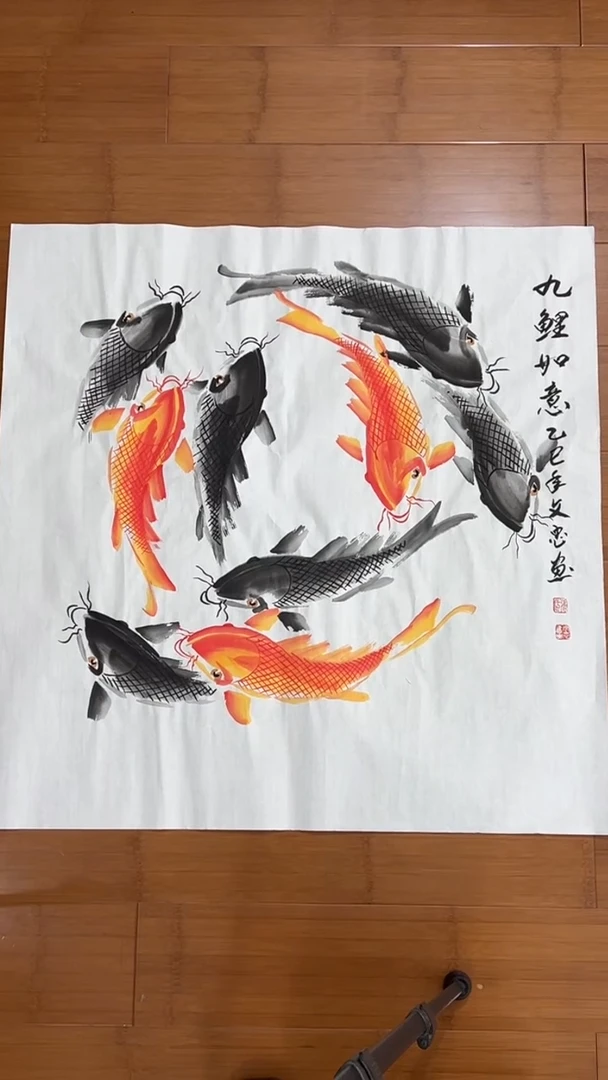 九鲤如意乙巳年文忠画